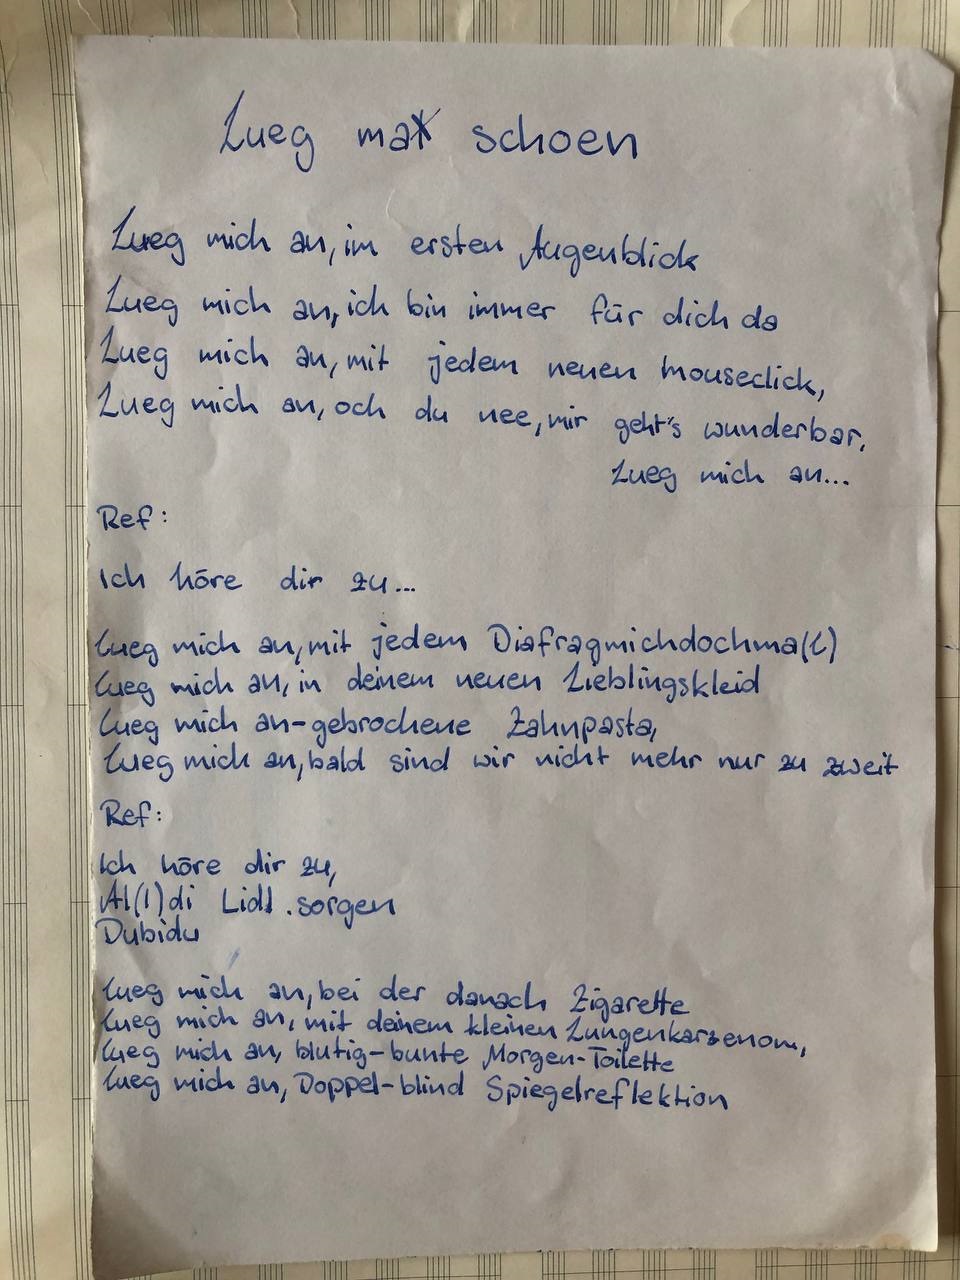 Lueg max schoen
Lueg mich an, im ersten Augenblick
Lueg mich an, ich bin immer für dich da
Lueg mich an, mit jedem neuen mouseclick,
Lueg mich an, och du nee, mir geht's wunderbar,
Lueg mich an...
Ref:
Ich höre dir zu...
Lueg mich an, mit jedem Diafragmichdochma(l)
Lueg mich an, in deinem neuen Lieblingskleid
Lueg mich an-gebrochene Zahnpasta,
Lueg mich an, bald sind wir nicht mehr nur zu zweit
Ref:
Ich höre dir zu,
Al(l)di Lidl.sorgen
Dubidu
Lueg mich an, bei der danach Zigarette
Lueg mich an, mit deinem kleinen Lungenkarzenom,
Lueg mich an, blutig-bunte Morgen-Toilette
Lueg mich an, Doppel-blind Spiegelreflektion